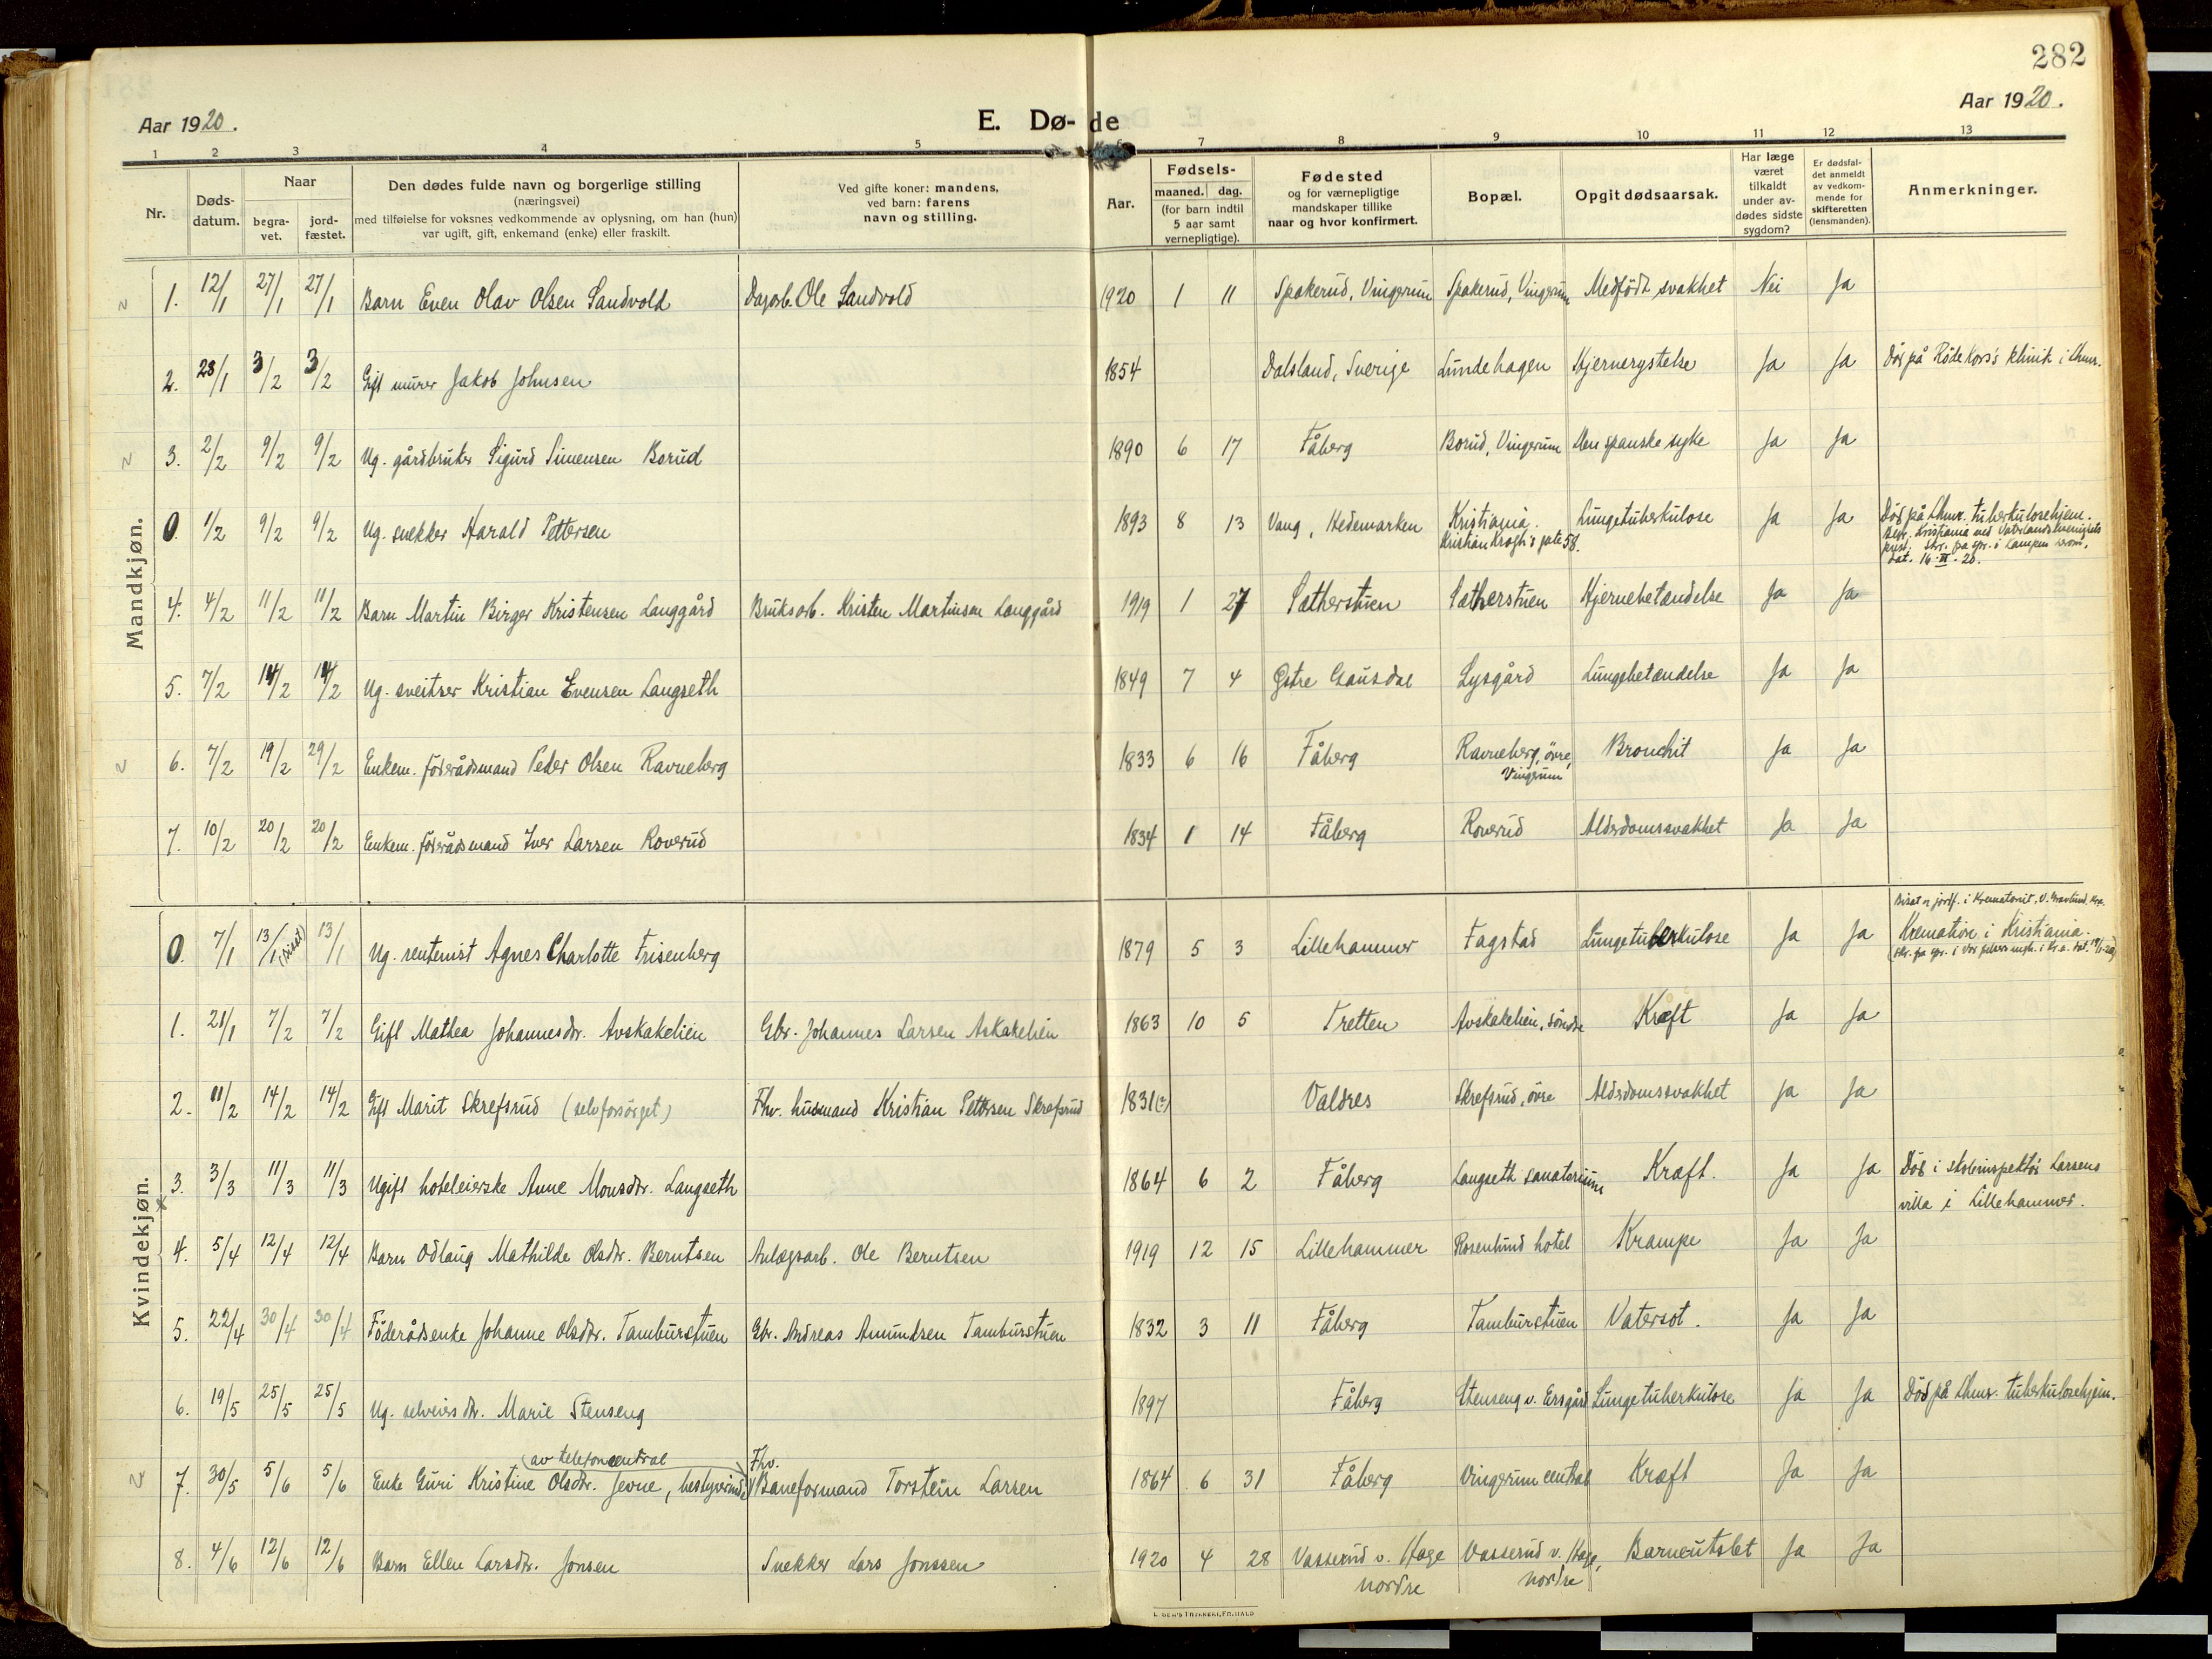 282
Aar 1920.
E. Dø- de
Aar 1920.
1 2 3 4 5 7 8 9 10 11 12 13
Nr.
Døds-
datum.
Naar
begra-
vet.
jord-
fæstet.
Den dødes fulde navn og borgerlige stilling
(næringsvei)
med tilføielse for voksnes vedkommende av oplysning, om han (hun)
var ugift, gift, enkemand (enke) eller fraskilt.
Ved gifte koner: mandens,
ved barn: farens
navn og stilling.
Aar.
Fødsels-
maaned. dag.
(for barn indtil
5 aar samt
vernepligtige).
Fødested
og for værnepligtige
mandskaper tillike
naar og hvor konfirmert.
Bopæl.
Opgit dødsaarsak.
Har læge
været
tilkaldt
under av-
dødes sidste
sygdom?
Er dødsfal-
det anmeldt
av vedkom-
mende for
skifteretten
(lensmanden).
Anmerkninger.
Mandkjøn.
1. 12/1 27/1 27/1 Barn Even Olav Olsen Sandvold Dagarb. Ole Sandvold 1920 1 11 Spakerud, Vingerum Spakerud, Vingerum Medfödt svakhet Nei Ja
2. 28/1 3/2 3/2 Gift murer Jakob Johnsen 1854 Dalsland, Sverige Lundehagen Hjernerystelse Ja Ja Död på Röde Kors's klinik i Lhmr.
3. 2/2 9/2 9/2 Ug. gårdbruker Sigurd Simensen Borud 1890 6 17 Fåberg Borud, Vingerum Den spanske syke Ja Ja
0. 1/2 9/2 9/2 Ug. snekker Harald Pettersen 1893 8 13 Vang, Hedemarken Kristiania. Lungetuberkulose Ja Ja Död på Lhmr. tuberkulosehjem.
Kristian Krogh's gate 58.
Begr. Kristiania ved
dat. 16-II-20.
4. 4/2 11/2 11/2 Barn Martin Birger Kristensen Langgård Bruksarb. Kristen Martinsen Langgård 1919 1 27 Sætherstuen Sætherstuen Hjernebetændelse Ja Ja
5. 7/2 14/2 14/2 Ug. sveitser Kristian Evensen Langseth 1849 7 4 Østre Gausdal Lysgård Lungebetændelse Ja Ja
6. 7/2 19/2 29/2 Enkem. föderådsmand Peder Olsen Ravneberg 1833 6 16 Fåberg Ravneberg, övre, Bronchit Ja Ja
Vingerum
7. 10/2 20/2 20/2 Enkem. föderådsmand Iver Larsen Roverud 1834 1 14 Fåberg Roverud Alderdomssvakhet Ja Ja
Kvindekjøn.
Bisat og jordf. i Krematoriet, V. Gravlund, Kra.
0. 7/1 13/1 (bisat) 13/1 Ug. rentenist Agnes Charlotte Frisenberg 1879 5 3 Lillehammer Fagstad Lungetuberkulose Ja Ja Kremation i Kristiania.
1. 28/1 7/2 7/2 Gift Mathea Johannesdtr. Avskakelien Gbr. Johannes Larsen Askakelien 1863 10 5 Tretten Avskakelien, söndre Kræft Ja Ja
2. 11/2 14/2 14/2 Gift Marit Skrefsrud (selvforsörget) Fhv. husmand Kristian Pettersen Skrefsrud 1831(?) Valdres Skrefsrud, övre Alderdomssvakhet Ja Ja
3. 3/3 11/3 11/3 Ugift hoteleierske Anne Monsdtr. Langseth 1864 6 2 Fåberg Langseth sanatorium Kræft. Ja Ja Död i skoleinspektör Larsens
villa i Lillehammer.
4. 5/4 12/4 12/4 Barn Odlaug Mathilde Olsdtr. Berntsen Anlægsarb. Ole Berntsen 1919 12 15 Lillehammer Rosenlund hotel Krampe Ja Ja
5. 22/4 30/4 30/4 Föderådsenke Johanne Olsdtr. Tamburstuen Gbr. Andreas Amundsen Tamburstuen 1832 3 11 Fåberg Tamburstuen Vatersot. Ja Ja
6. 19/5 25/5 25/5 Ug. selveiersdtr. Marie Stenseng 1897 Fåberg Stenseng v. Ersgård Lungetuberkulose Ja Ja Död på Lhmr. tuberkulosehjem.
(av telefoncentral Fhv.
7. 30/5 5/6 5/6 Enke Guri Kristine Olsdtr. Jevne, bestyrerinde Baneformand Torstein Larsen 1864 6 31 Fåberg Vingerum central Kræft Ja Ja
8. 4/6 12/6 12/6 Barn Ellen Larsdtr. Jonsen Snekker Lars Jonssen 1920 4 28 Vasserud v. Hage Vasserud v. Hage, Barneutslet Ja Ja
nordre nordre